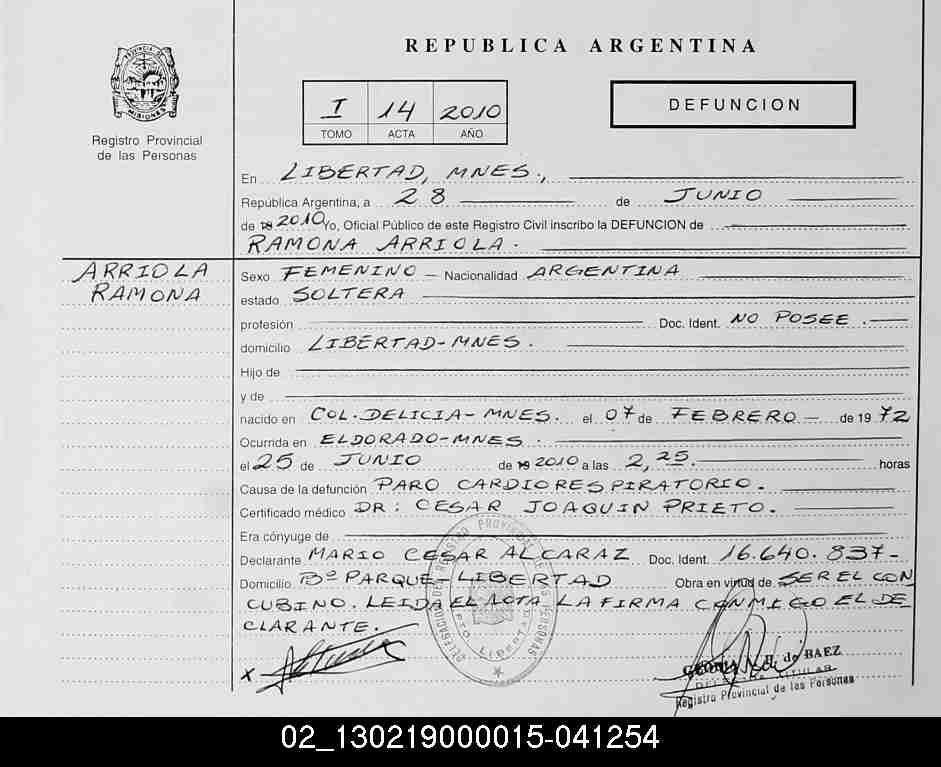 REPUBLICA ARGENTINA
PROVINCIA DE
MISIONES
Registro Provincial
de las Personas
I 14 2010
TOMO ACTA AÑO
DEFUNCION
En LIBERTAD, MNES.,
República Argentina, a 28 de JUNIO
de 19 2010 Yo, Oficial Público de este Registro Civil inscribo la DEFUNCION de
RAMONA ARRIOLA.
ARRIOLA
RAMONA
Sexo FEMENINO - Nacionalidad ARGENTINA
estado SOLTERA
profesión Doc. Ident. NO POSEE.
domicilio LIBERTAD-MNES.
Hijo de
y de
nacido en COL. DELICIA-MNES. el 07 de FEBRERO - de 1972
Ocurrida en ELDORADO-MNES.
el 25 de JUNIO de 19 2010 a las 2,25. horas
Causa de la defunción PARO CARDIORESPIRATORIO.
Certificado médico DR: CESAR JOAQUIN PRIETO.
Era cónyuge de
Declarante MARIO CESAR ALCARAZ Doc. Ident. 16.640.837-
Domicilio Bº PARQUE-LIBERTAD Obra en virtud de SER EL CON
CUBINO. LEIDA EL ACTA LA FIRMA CONMIGO EL DE
CLARANTE.
DELEGACION DE REGISTRO PROVINCIAL DE LAS PERSONAS
DPTO. LIBERTAD
X
GLORIA H. de BAEZ
TITULAR
Registro Provincial de las Personas
02_130219000015-041254